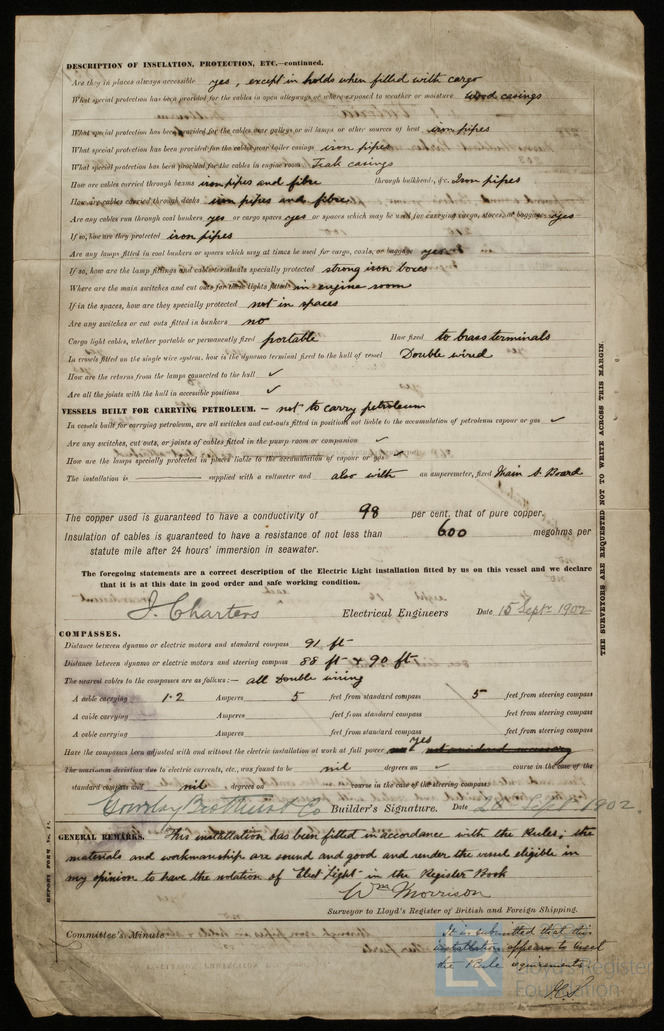 DESCRIPTION OF INSULATION, PROTECTION, ETC.—continued.
Are they in places always accessible yes, except in holds when filled with cargo
What special protection has been provided for the cables in open alleyways or where exposed to weather or moisture Wood casings
What special protection has been provided for the cables near galleys or oil lamps or other sources of heat iron pipes
What special protection has been provided for the cables near boiler casings iron pipes
What special protection has been provided for the cables in engine room Teak casings
How are cables carried through beams iron pipes and fibre through bulkheads, &c. Iron pipes
How are cables carried through decks iron pipes and fibre
Are any cables run through coal bunkers yes or cargo spaces yes or spaces which may be used for carrying cargo, stores, or baggage yes
If so, how are they protected iron pipes
Are any lamps fitted in coal bunkers or spaces which may at times be used for cargo, coals, or baggage yes
If so, how are the lamp fittings and cable terminals specially protected strong iron boxes
Where are the main switches and cut outs for these lights fitted in engine room
If in the spaces, how are they specially protected not in spaces
Are any switches or cut outs fitted in bunkers no
Cargo light cables, whether portable or permanently fixed portable How fixed to brass terminals
In vessels fitted on the single wire system, how is the dynamo terminal fixed to the hull of vessel Double wired
How are the returns from the lamps connected to the hull ✓
Are all the joints with the hull in accessible positions ✓
VESSELS BUILT FOR CARRYING PETROLEUM. — not to carry petroleum
In vessels built for carrying petroleum, are all switches and cut-outs fitted in positions not liable to the accumulation of petroleum vapour or gas ✓
Are any switches, cut outs, or joints of cables fitted in the pump room or companion ✓
How are the lamps specially protected in places liable to the accumulation of vapour or gas ✓
The installation is supplied with a voltmeter and also with an amperemeter, fixed Main S. Board
The copper used is guaranteed to have a conductivity of 98 per cent. that of pure copper.
Insulation of cables is guaranteed to have a resistance of not less than 600 megohms per
statute mile after 24 hours' immersion in seawater.
The foregoing statements are a correct description of the Electric Light installation fitted by us on this vessel and we declare
that it is at this date in good order and safe working condition.
J. Charters Electrical Engineers Date 15 Sept. 1902
COMPASSES.
Distance between dynamo or electric motors and standard compass 91 ft
Distance between dynamo or electric motors and steering compass 88 ft & 90 ft
The nearest cables to the compasses are as follows:— all Double wiring
A cable carrying 1.2 Amperes 5 feet from standard compass 5 feet from steering compass
A cable carrying Amperes feet from standard compass feet from steering compass
A cable carrying Amperes feet from standard compass feet from steering compass
Have the compasses been adjusted with and without the electric installation at work at full power yes not considered necessary
The maximum deviation due to electric currents, etc., was found to be nil degrees on ✓ course in the case of the
standard compass and nil degrees on course in the case of the steering compass
Gourlay Brothers & Co Builder's Signature. Date 26 Sept. 1902.
GENERAL REMARKS. This installation has been fitted in accordance with the Rules, the
materials and workmanship are sound and good and render the vessel eligible in
my opinion to have the notation of "Elect Light" in the Register Book
Wm Morrison
Surveyor to Lloyd's Register of British and Foreign Shipping.
Committee's Minute
It is submitted that this
installation appears to meet
the Rule requirements
THE SURVEYORS ARE REQUESTED NOT TO WRITE ACROSS THIS MARGIN.
REPORT FORM No.
LR
Lloyd's Register
Foundation